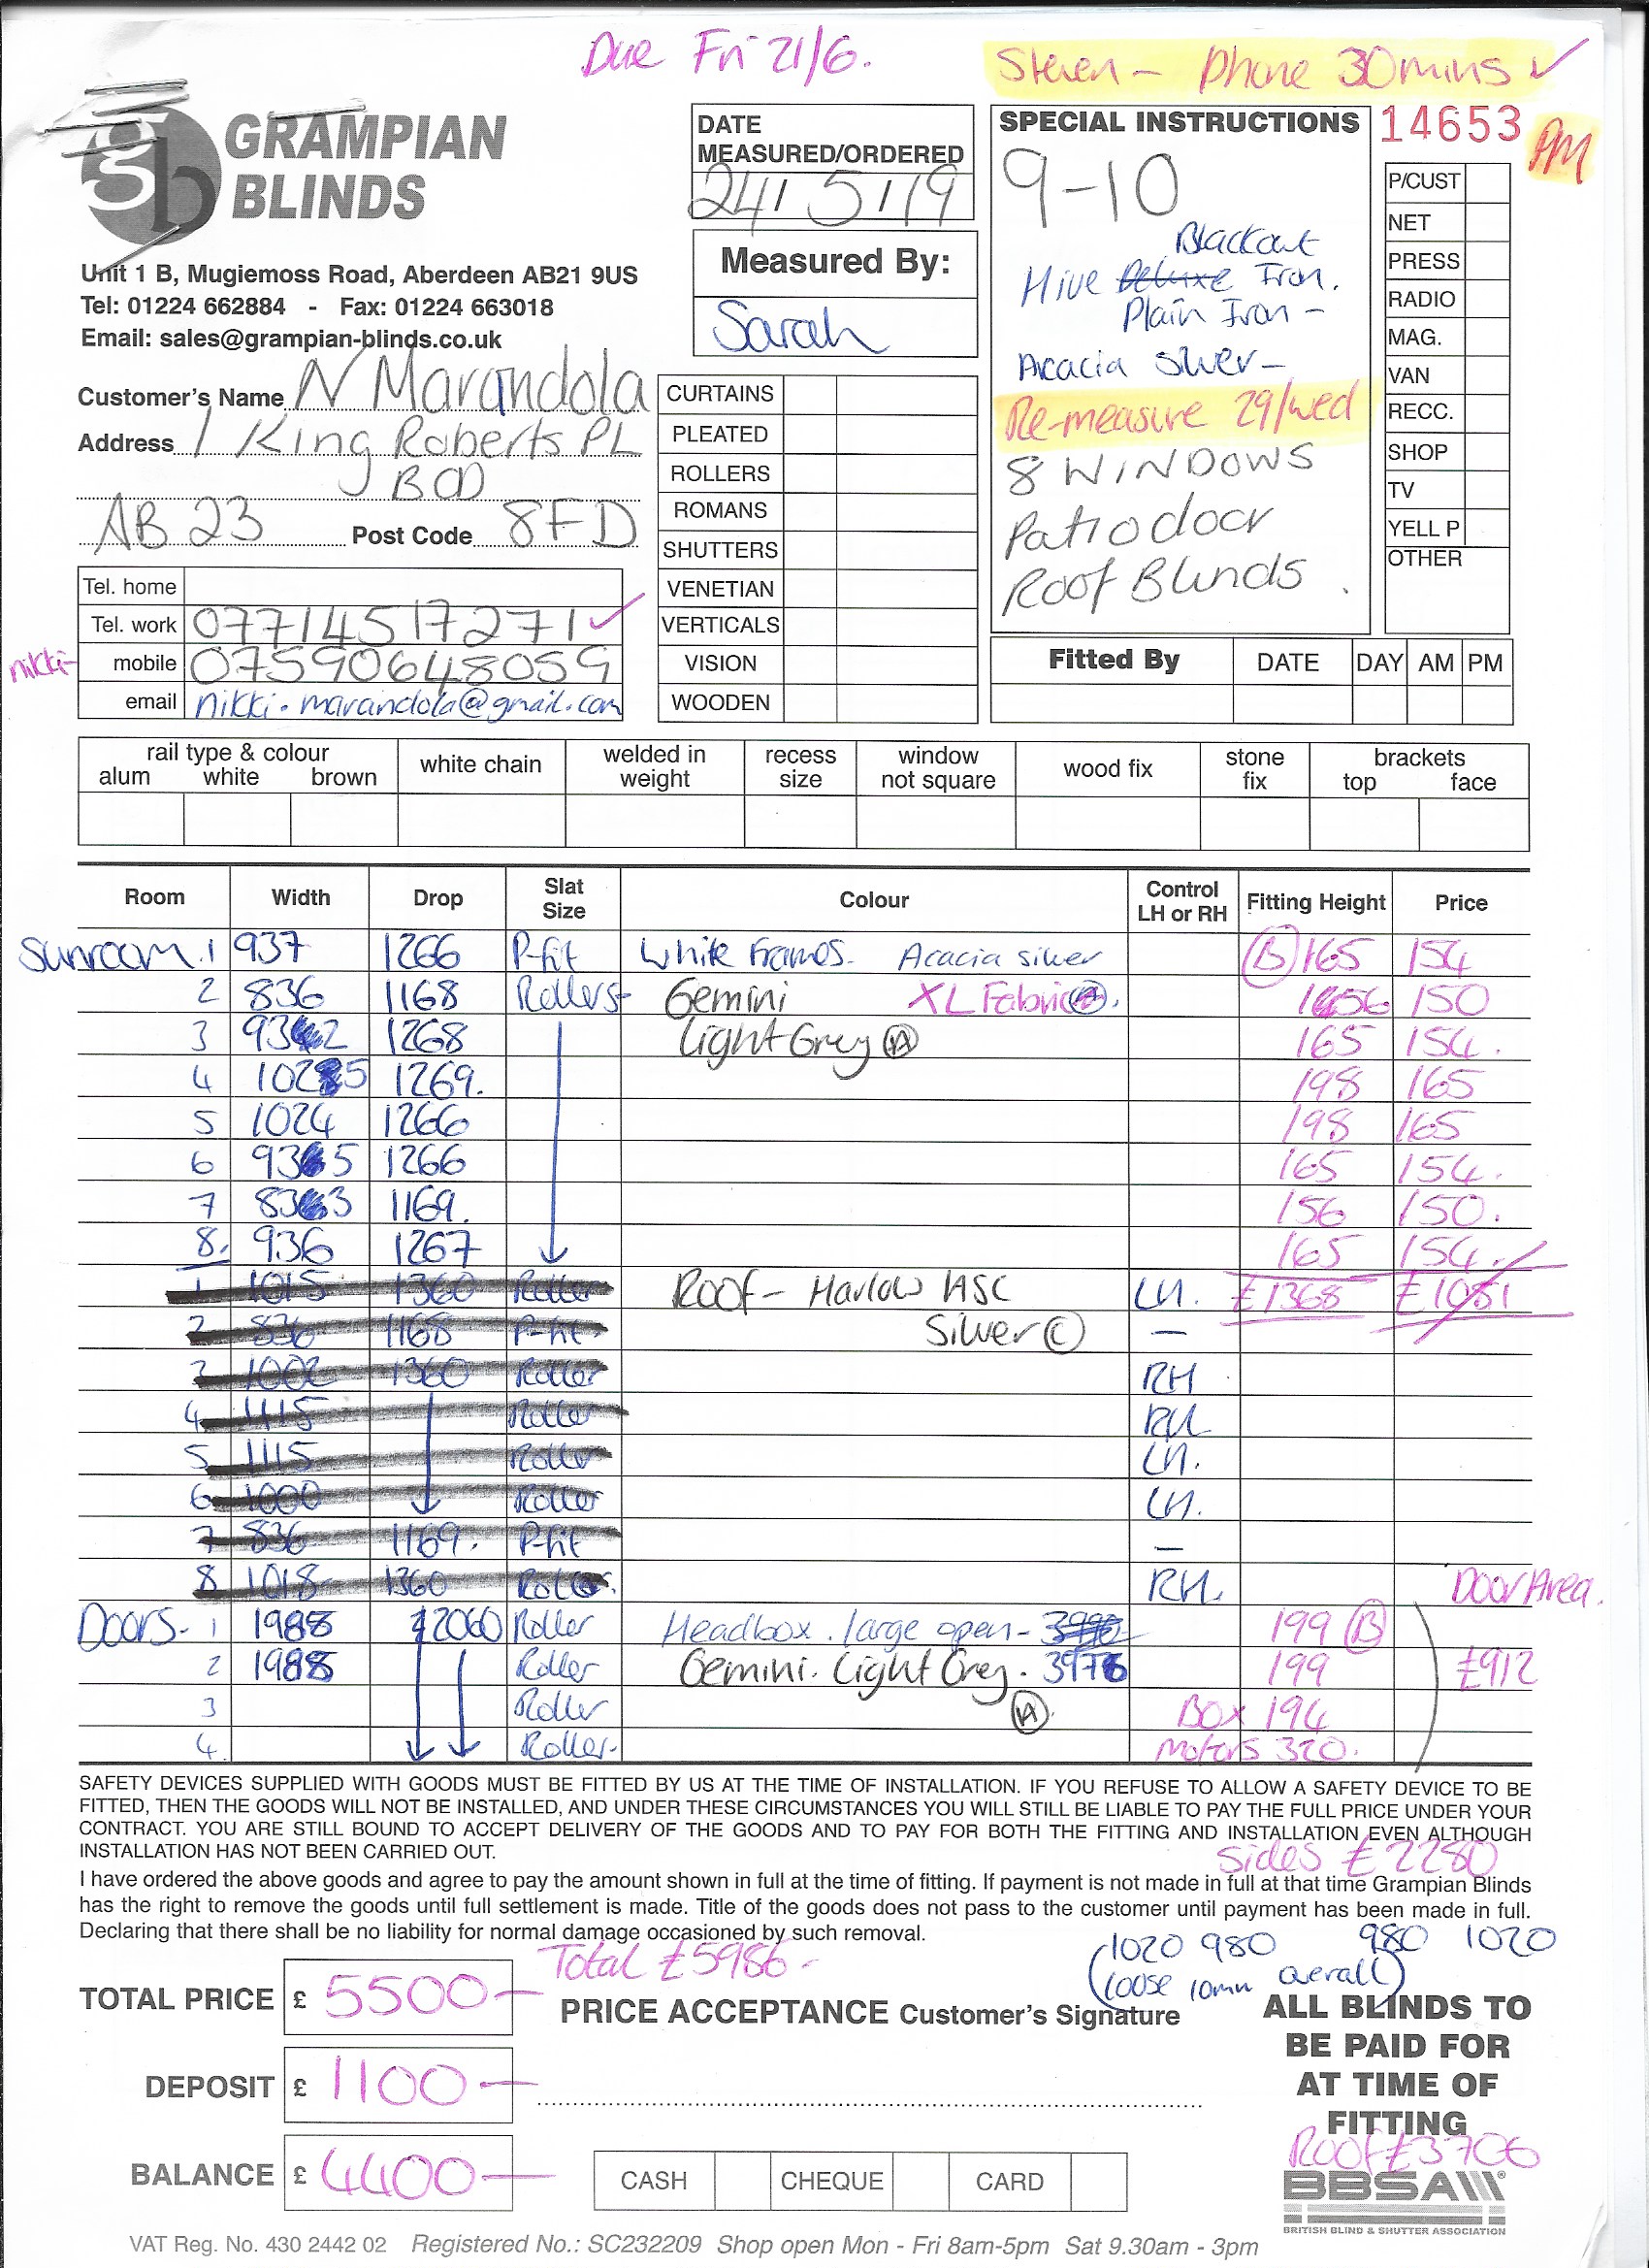 Due Fri 21/6.
Steven - Phone 30mins ✓
GRAMPIAN
BLINDS
Unit 1 B, Mugiemoss Road, Aberdeen AB21 9US
Tel: 01224 662884 - Fax: 01224 663018
Email: sales@grampian-blinds.co.uk
DATE
MEASURED/ORDERED
24/5/19
Measured By:
Sarah
SPECIAL INSTRUCTIONS
9-10
Blackout
Hive Deluxe Iron.
Plain Iron -
Acacia Silver -
Re-measure 29/Wed
8 WINDOWS
Patio door
Roof Blinds.
14653
PM
P/CUST
NET
PRESS
RADIO
MAG.
VAN
RECC.
SHOP
TV
YELL P
OTHER
Customer's Name N Marandola
Address 1 King Roberts PL
BOD
AB 23 Post Code 8FD
Tel. home
Tel. work 07714517271 ✓
nikki- mobile 07590648059
email nikki.marandola@gmail.com
CURTAINS
PLEATED
ROLLERS
ROMANS
SHUTTERS
VENETIAN
VERTICALS
VISION
WOODEN
Fitted By DATE DAY AM PM
rail type & colour
alum white brown
white chain
welded in
weight
recess
size
window
not square
wood fix
stone
fix
brackets
top face
Room Width Drop Slat Size Colour Control LH or RH Fitting Height Price
Sunroom. 1 937 1266 P-fit White Frames. Acacia silver (B) 165 154
2 836 1168 Rollers- Gemini XL Fabric (A). 156 150
3 932 1268 Light Grey (A) 165 154.
4 1025 1269. 198 165
5 1024 1266 198 165
6 935 1266 165 154.
7 833 1169. 156 150.
8. 936 1267 165 154.
1 1015 1360 Roller Roof - Harlow ASC LH. £1368 £1081
2 836 1168 P-fit. Silver (C) -
3 1002 1360 Roller RH
4 1115 Roller RH
5 1115 Roller LH.
6 1000 Roller LH.
7 836 1169. P-fit -
8 1018 1360 Roller. RH. Door Area.
Doors- 1 1988 2060 Roller Headbox. large open - 199 (B)
2 1988 Roller Gemini. Light Grey. 3976 199 £912
3 Roller (A). Box 194
4. Roller. Motors 320.
SAFETY DEVICES SUPPLIED WITH GOODS MUST BE FITTED BY US AT THE TIME OF INSTALLATION. IF YOU REFUSE TO ALLOW A SAFETY DEVICE TO BE
FITTED, THEN THE GOODS WILL NOT BE INSTALLED, AND UNDER THESE CIRCUMSTANCES YOU WILL STILL BE LIABLE TO PAY THE FULL PRICE UNDER YOUR
CONTRACT. YOU ARE STILL BOUND TO ACCEPT DELIVERY OF THE GOODS AND TO PAY FOR BOTH THE FITTING AND INSTALLATION EVEN ALTHOUGH
INSTALLATION HAS NOT BEEN CARRIED OUT.
sides £2280
I have ordered the above goods and agree to pay the amount shown in full at the time of fitting. If payment is not made in full at that time Grampian Blinds
has the right to remove the goods until full settlement is made. Title of the goods does not pass to the customer until payment has been made in full.
Declaring that there shall be no liability for normal damage occasioned by such removal.
Total £5986 -
1020 980 980 1020
(loose 10mm overall)
TOTAL PRICE £ 5500 -
PRICE ACCEPTANCE Customer's Signature
DEPOSIT £ 1100 -
BALANCE £ 4400 -
CASH CHEQUE CARD
ALL BLINDS TO
BE PAID FOR
AT TIME OF
FITTING
Roof £3706
BBSA
BRITISH BLIND & SHUTTER ASSOCIATION
VAT Reg. No. 430 2442 02 Registered No.: SC232209 Shop open Mon - Fri 8am-5pm Sat 9.30am - 3pm